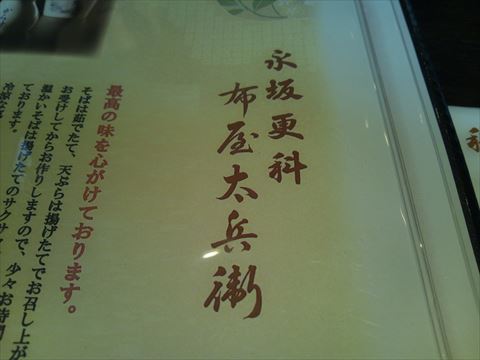 永坂更科
布屋太兵衛
最高の味を心がけております。
そばは茹でたて、天ぷらは揚げたてでお召し上が
お受けしてからお作りしますので、少々お時間
温かいそばは揚げたてのサクサク
ております。